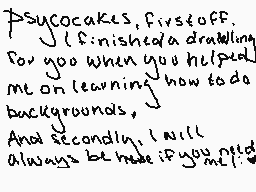 Psycocakes, first off,
I finished a drawling
for you when you helped
me on learning how to do
backgrounds,
And secondly, I will
always be here if you need
me!! ♥